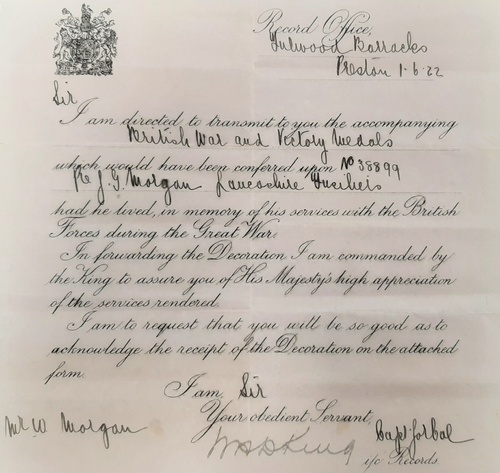 Record Office,
Fulwood Barracks
Preston 1-6-22
Sir
I am directed to transmit to you the accompanying
British War and Victory Medals
which would have been conferred upon No 38899
Pte J. G. Morgan Lancashire Fusiliers
had he lived, in memory of his services with the British
Forces during the Great War.
In forwarding the Decoration I am commanded by
the King to assure you of His Majesty's high appreciation
of the services rendered.
I am to request that you will be so good as to
acknowledge the receipt of the Decoration on the attached
form
I am, Sir
Your obedient Servant,
Mr W Morgan
King Capt for Col
i/c Records.